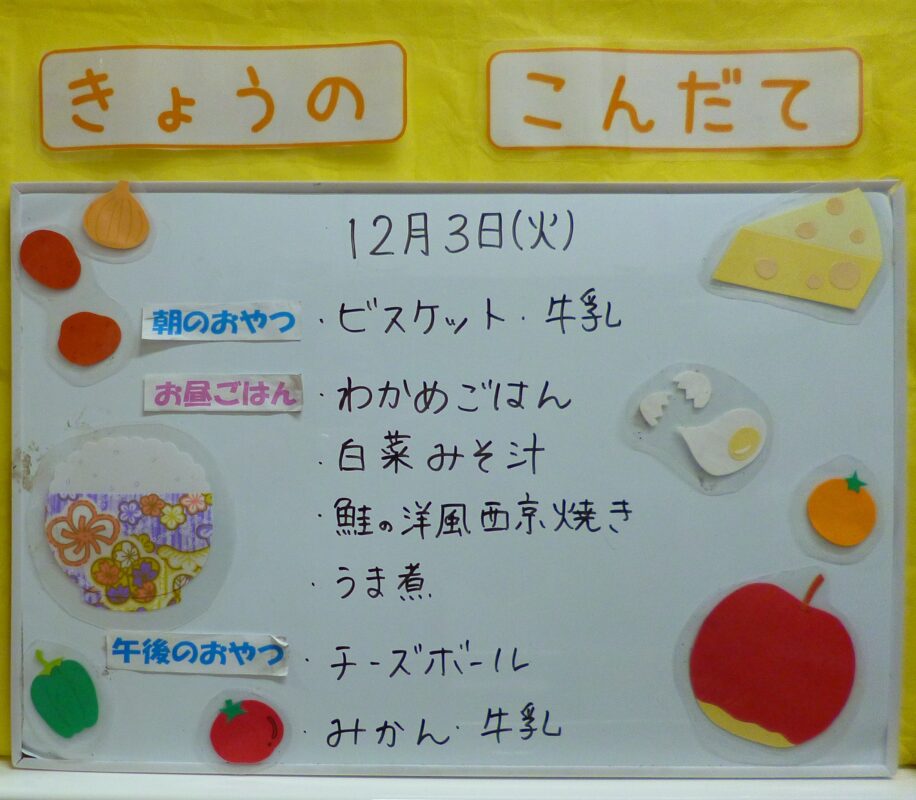 きょうの こんだて
12月3日(火)
朝のおやつ ・ビスケット・牛乳
お昼ごはん ・わかめごはん
・白菜みそ汁
・鮭の洋風西京焼き
・うま煮
午後のおやつ ・チーズボール
・みかん・牛乳